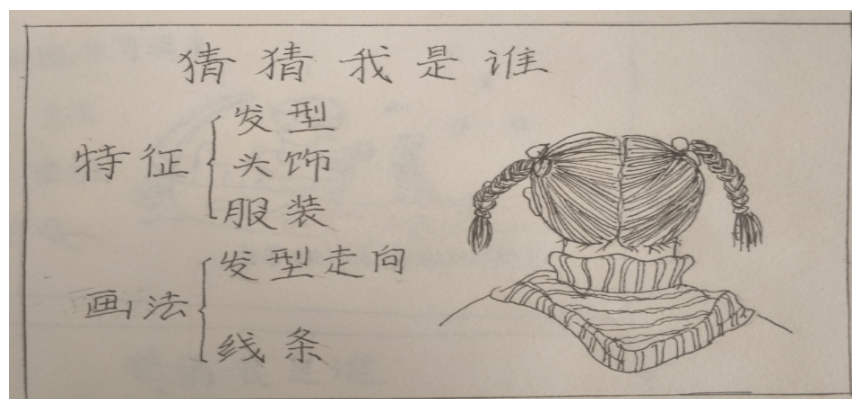 猜猜我是谁
特征
发型
头饰
服装
画法
发型走向
线条